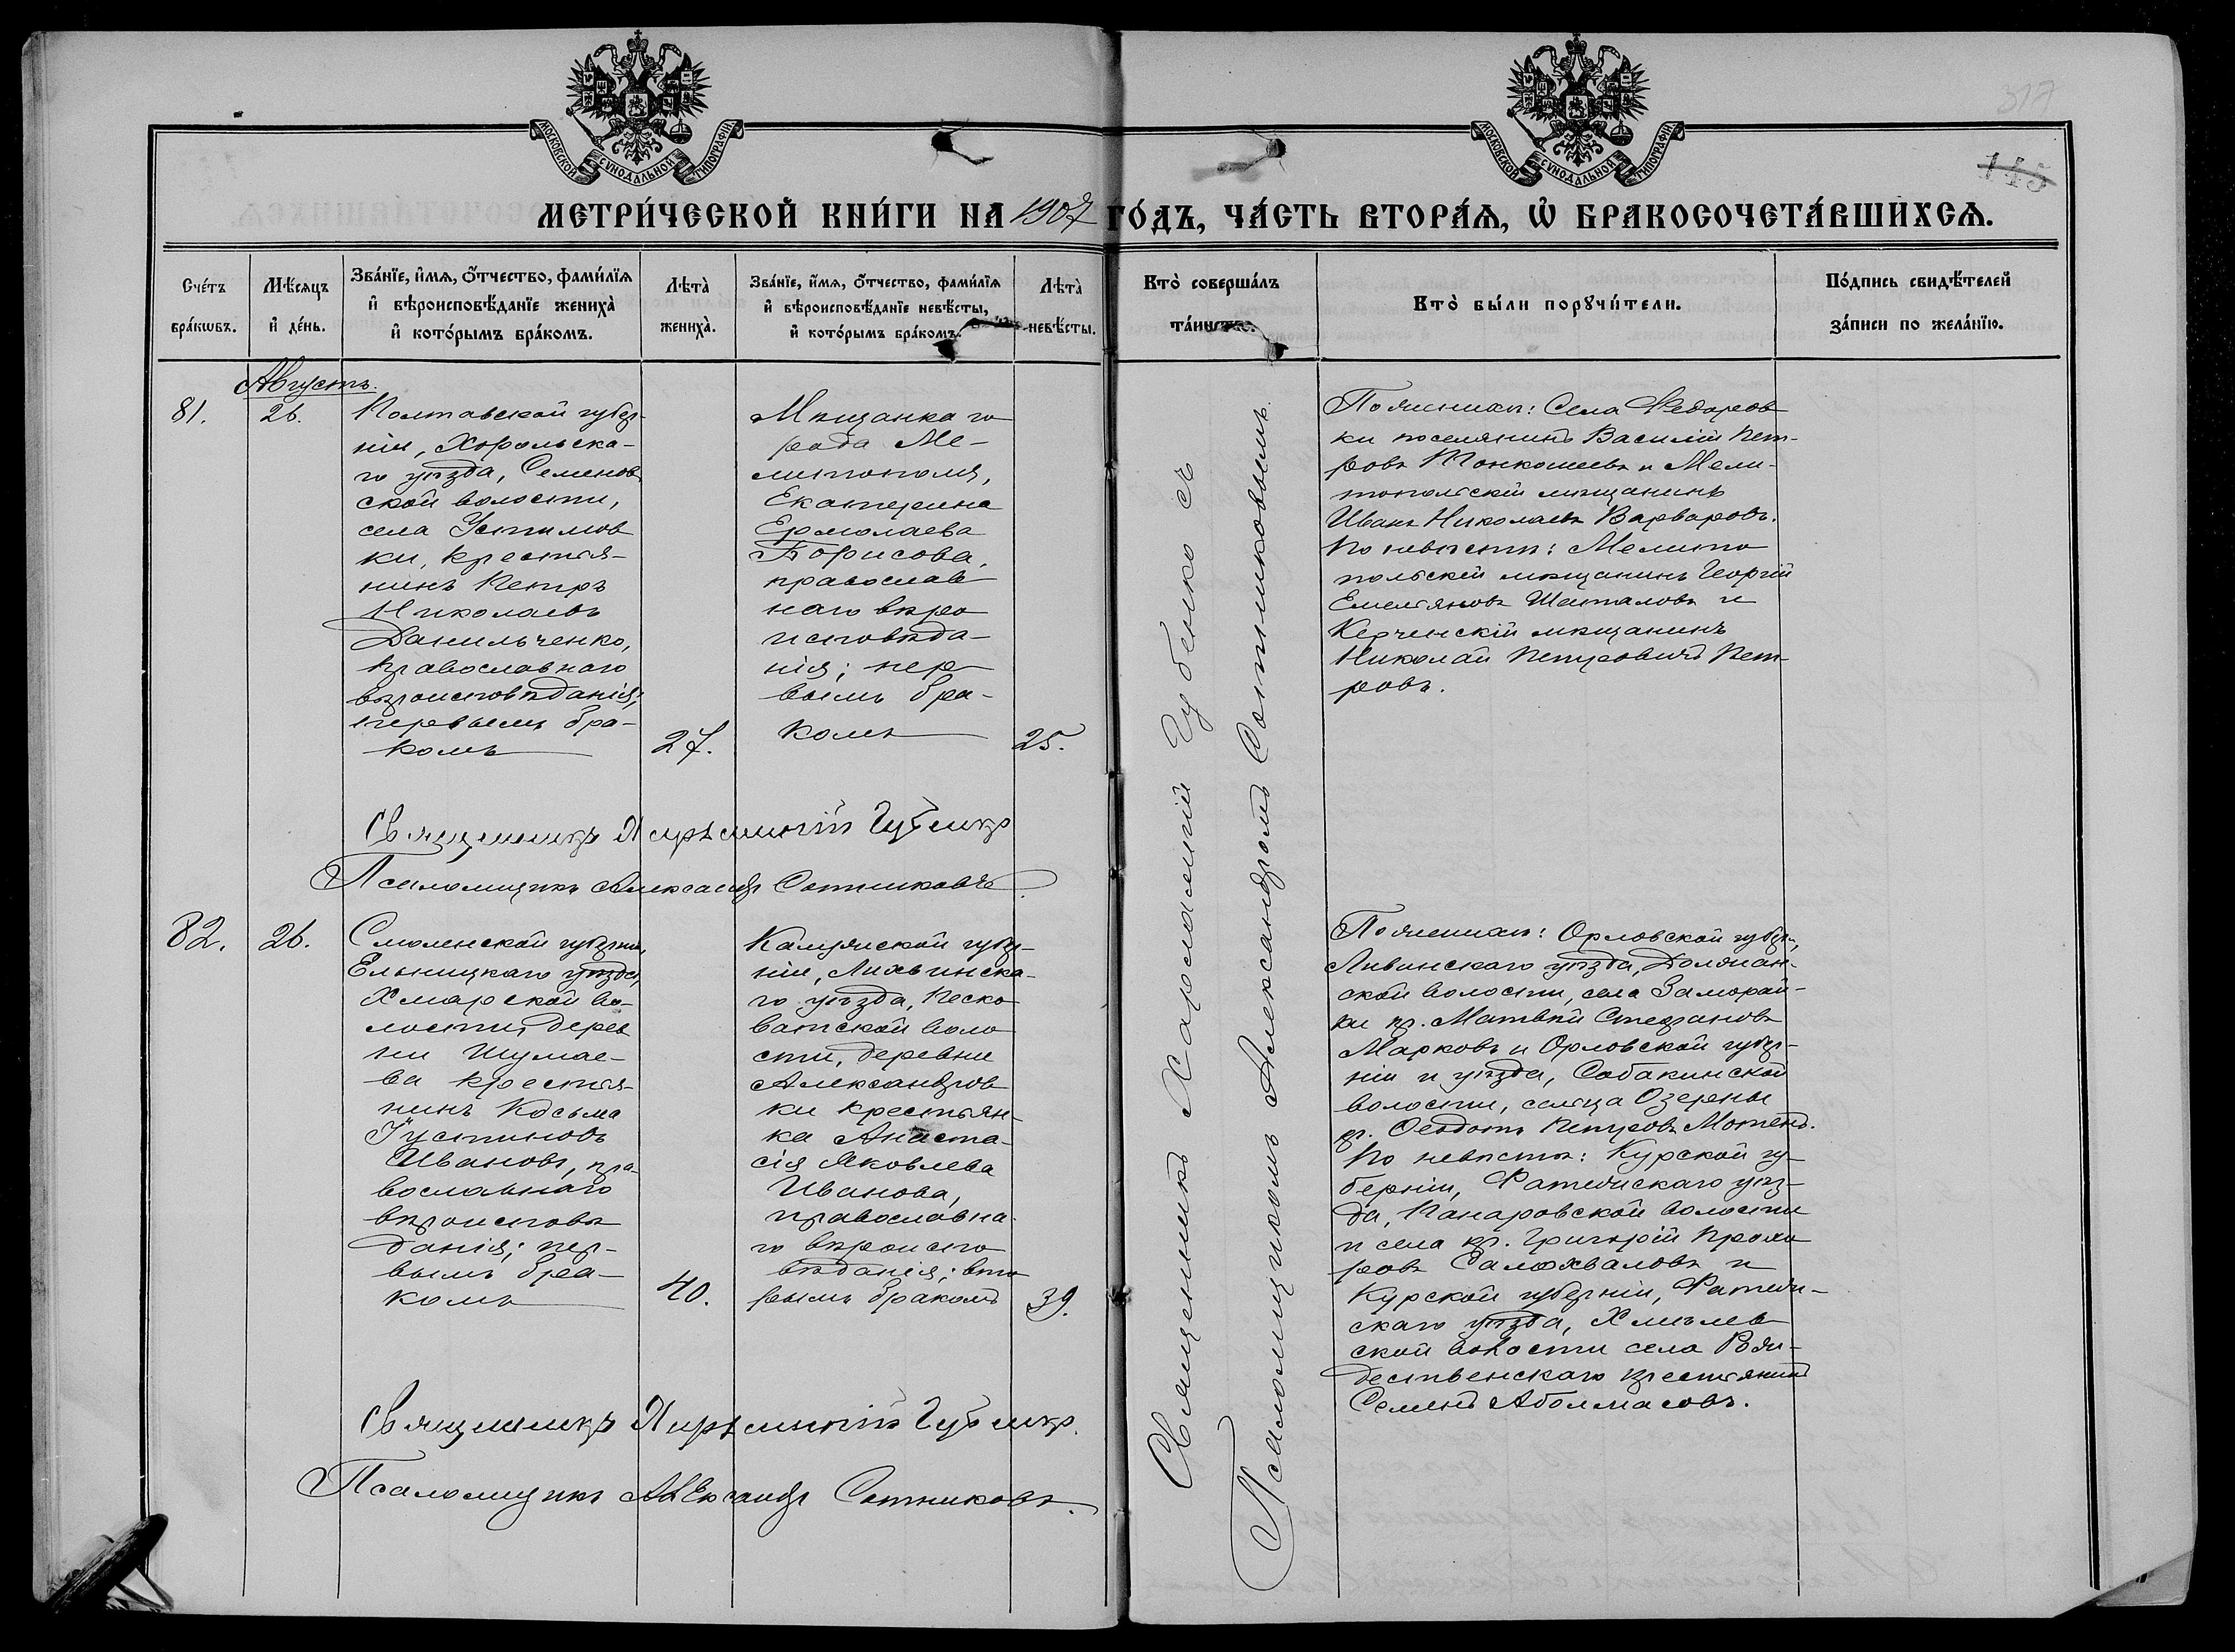 МОСКОВСКОЙ СѴНОДАЛЬНОЙ ТИПОГРАФІИ
МОСКОВСКОЙ СѴНОДАЛЬНОЙ ТИПОГРАФІИ
317
145
МЕТРИ́ЧЕСКОЙ КНИ́ГИ НА 1907 ГО́ДЪ, ЧА́СТЬ ВТОРА́Ѧ, Ѡ҆ БРАКОСОЧЕТА́ВШИХСѦ.
Сче́тъ
бра́кѡвъ.
Мѣ́сяцъ
и҆ де́нь.
Зва́нїе, и҆́мѧ, ѻ҆́тчество, фами́лїѧ
и҆ вѣроисповѣ́данїе жениха̀
и҆ кото́рымъ бра́комъ.
Лѣта̀
жениха̀.
Зва́нїе, и҆́мѧ, ѻ҆́тчество, фами́лїѧ
и҆ вѣроисповѣ́данїе невѣ́сты,
и҆ кото́рымъ бра́комъ.
Лѣта̀
невѣ́сты.
Кто̀ соверша́лъ
та́инство.
Кто̀ бы́ли порꙋчи́тели.
По́дпись свидѣ́телей
за́писи по жела́нїю.
Августъ.
81.
26.
Полтавской губер-
ніи, Хорольска-
го уѣзда, Семенов
ской волости,
села Устимов
ки, крестья-
нинъ Петръ
Николаевъ
Данильченко,
православнаго
вѣроисповѣданія;
первымъ бра-
комъ
27.
Мѣщанка го
рода Ме-
литополя,
Екатерина
Ермолаева
Борисова,
православ
наго вѣро
исповѣда-
нія; пер
вымъ бра-
комъ
25.
Священникъ Харлампій Губенко съ
Псаломщикомъ Александромъ Сотниковымъ.
По женихѣ: Села Федоров
ки поселянинъ Василій Пет-
ровъ Тонкошеевъ и Мели-
топольскій мѣщанинъ
Иванъ Николаевъ Варваровъ.
По невѣстѣ: Мелито
польскій мѣщанинъ Георгій
Емельяновъ Шаталовъ и
Керченскій мѣщанинъ
Николай Петровичъ Пет-
ровъ.
Священникъ Харлампій Губенко
Псаломщикъ Александръ Сотниковъ.
82.
26.
Смоленской губерніи,
Ельницкаго уѣзда,
Хмарской во-
лости, дерев
ни Шумае-
ва крестья-
нинъ Косьма
Іустиновъ
Ивановъ, пра-
вославнаго
вѣроисповѣ
данія; пер-
вымъ бра-
комъ
40.
Калужской губер-
ніи, Лихвинска-
го уѣзда, Песко
ватской воло
сти, деревни
Александров
ки крестьян-
ка Анаста-
сія Яковлева
Иванова,
православна-
го вѣроиспо
вѣданія; вто
рымъ бракомъ
39.
По женихѣ: Орловской губер.,
Ливинскаго уѣзда, Должан-
ской волости, села Заморай-
ки кр. Матвѣй Стефановъ
Марковъ и Орловской губер-
ніи и уѣзда, Собакинской
волости, сельца Озерны
кр. Ѳеодотъ Петровъ
По невѣстѣ: Курской гу-
берніи, Фатежскаго уѣз-
да, волости
и села кр. Григорій Прохо
ровъ Самохваловъ и
Курской губерніи, Фатеж-
скаго уѣзда, Хмѣлев
ской волости села Рож-
дественскаго крестьянинъ
Семенъ Аболмасовъ.
Священникъ Харлампій Губенко.
Псаломщикъ Александръ Сотниковъ.